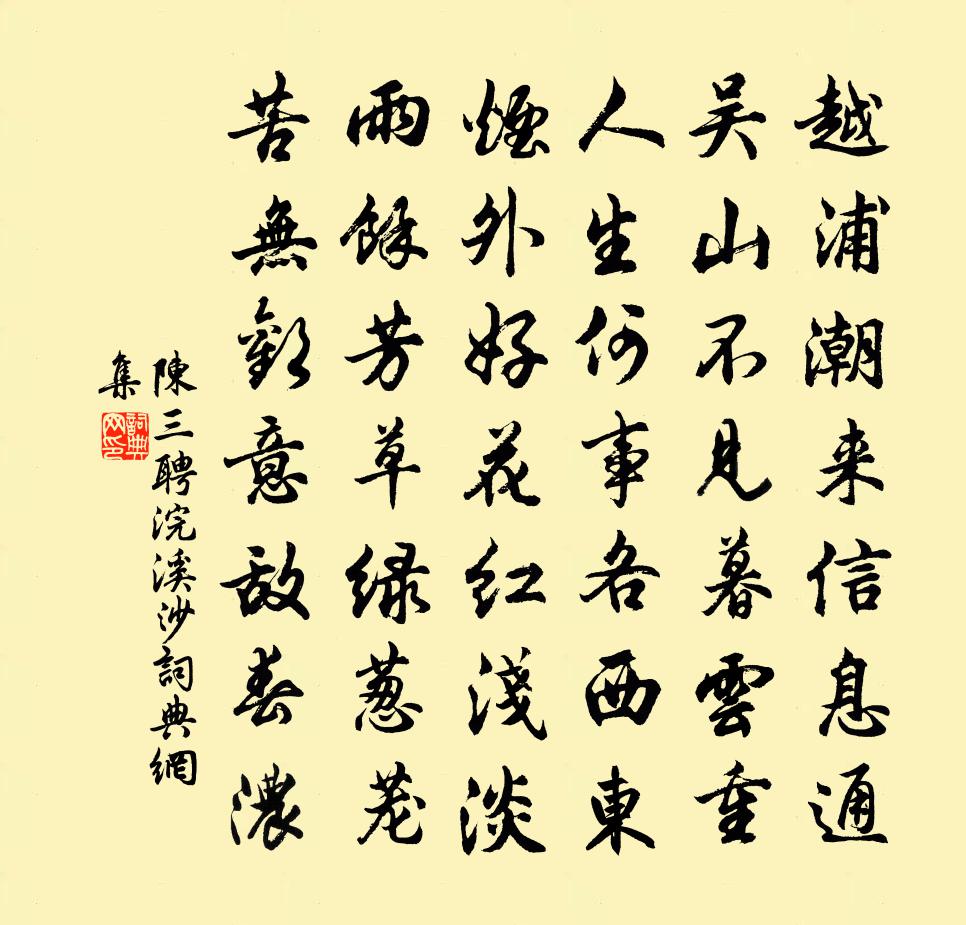 越浦潮来信息通
吴山不見暮雲重
人生何事各西東
煙外好花红淺淡
雨餘芳草绿葱茏
苦無歡意敌春濃
陳三聘浣溪沙詞典網
集
詞典
网印